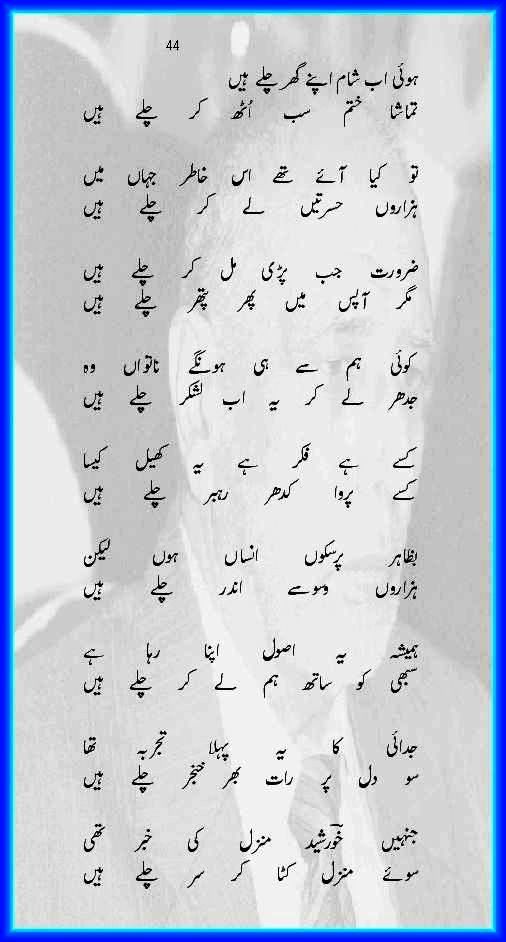 44
ہوئی اب شام اپنے گھر چلے ہیں
تماشا ختم سب اُٹھ کر چلے ہیں
تو کیا آئے تھے اس خاطر جہاں میں
ہزاروں حسرتیں لے کر چلے ہیں
ضرورت جب پڑی مل کر چلے ہیں
مگر آپس میں پھر پتھر چلے ہیں
کوئی ہم سے ہی ہونگے ناتواں وہ
جدھر لے کر یہ اب لشکر چلے ہیں
کسے ہے فکر ہے یہ کھیل کیسا
کسے پروا کدھر رہبر چلے ہیں
بظاہر پرسکوں انساں ہوں لیکن
ہزاروں وسوسے اندر چلے ہیں
ہمیشہ یہ اصول اپنا رہا ہے
سبھی کو ساتھ ہم لے کر چلے ہیں
جدائی کا یہ پہلا تجربہ تھا
سو دل پر رات بھر خنجر چلے ہیں
جنہیں خورشیدؔ منزل کی خبر تھی
سوئے منزل کٹا کر سر چلے ہیں